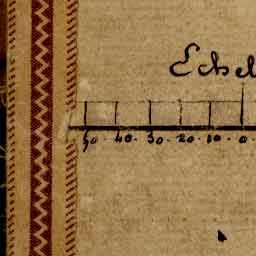 Echel
50. 40. 30. 20. 10. 0.